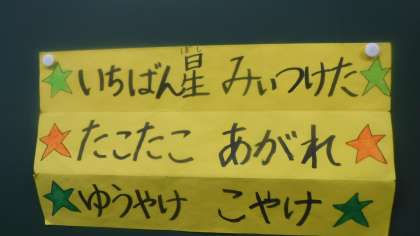 いちばん星 みぃつけた
たこたこ あがれ
ゆうやけ こやけ